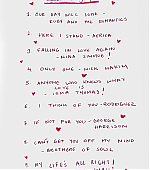 1. OUR DAY WILL COME -
RUBY AND THE ROMANTICS
2. HERE I STAND - AFRICA
3. FALLING IN LOVE AGAIN
- NINA SIMONE!
4. ONLY ONE - NICK HAKIM
5. ANYONE WHO KNOWS WHAT
LOVE IS
- IRMA THOMAS!
6. I THINK OF YOU - RODRIGUEZ
7. IF NOT FOR YOU - GEORGE
HARRISON
8. CAN'T GET YOU OFF MY MIND
- BROTHERS OF SOUL
9. MY LIFE'S ALL RIGHT!